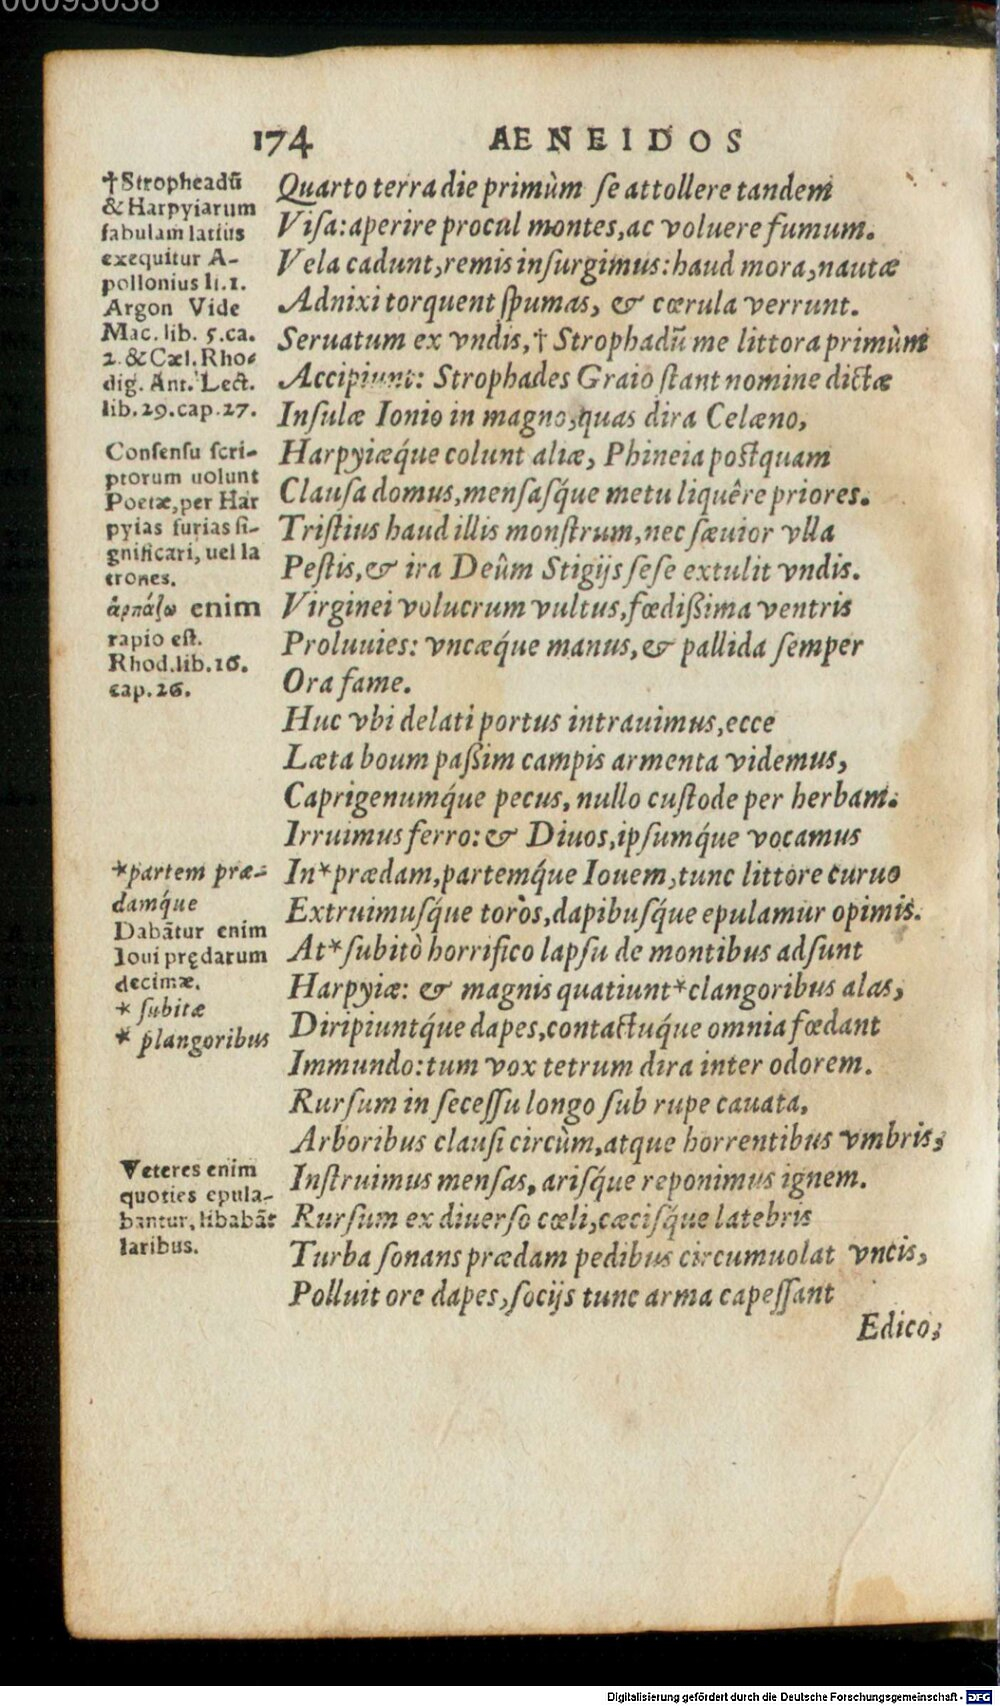 00093038
174 AENEIDOS
†Stropheadũ
& Harpyiarum
fabulam latius
exequitur A-
pollonius li.1.
Argon Vide
Mac. lib. 5.ca.
2. & Cæl. Rho-
dig. Ant. Lect.
lib.29.cap.27.
Consensu scri-
ptorum uolunt
Poetæ, per Har
pyias furias si-
gnificari, uel la
trones.
ἁρπάζω enim
rapio est.
Rhod.lib.16.
cap.26.
*partem præ-
damq́ue
Dabãtur enim
Ioui prędarum
decimæ.
* subitæ
* plangoribus
Veteres enim
quoties epula-
bantur, libabãt
laribus.
Quarto terra die primùm se attollere tandem
Visa: aperire procul montes, ac voluere fumum.
Vela cadunt, remis insurgimus: haud mora, nautæ
Adnixi torquent spumas, & cœrula verrunt.
Seruatum ex vndis, † Strophadũ me littora primùm
Accipiunt: Strophades Graio stant nomine dictæ
Insulæ Ionio in magno, quas dira Celæno,
Harpyiæq́ue colunt aliæ, Phineia postquam
Clausa domus, mensasq́ue metu liquêre priores.
Tristius haud illis monstrum, nec sæuior vlla
Pestis, & ira Deûm Stigijs sese extulit vndis.
Virginei volucrum vultus, fœdißima ventris
Proluuies: vncæq́ue manus, & pallida semper
Ora fame.
Huc vbi delati portus intrauimus, ecce
Læta boum paßim campis armenta videmus,
Caprigenumq́ue pecus, nullo custode per herbam.
Irruimus ferro: & Diuos, ipsumq́ue vocamus
In *prædam, partemq́ue Iouem, tunc littore curuo
Extruimusq́ue toros, dapibusq́ue epulamur opimis.
At *subitò horrifico lapsu de montibus adsunt
Harpyiæ: & magnis quatiunt *clangoribus alas,
Diripiuntq́ue dapes, contactuq́ue omnia fœdant
Immundo: tum vox tetrum dira inter odorem.
Rursum in secessu longo sub rupe cauata,
Arboribus clausi circùm, atque horrentibus vmbris,
Instruimus mensas, arisq́ue reponimus ignem.
Rursum ex diuerso cœli, cæcisq́ue latebris
Turba sonans prædam pedibus circumuolat vncis,
Polluit ore dapes, socijs tunc arma capessant
Edico,
Digitalisierung gefördert durch die Deutsche Forschungsgemeinschaft - DFG